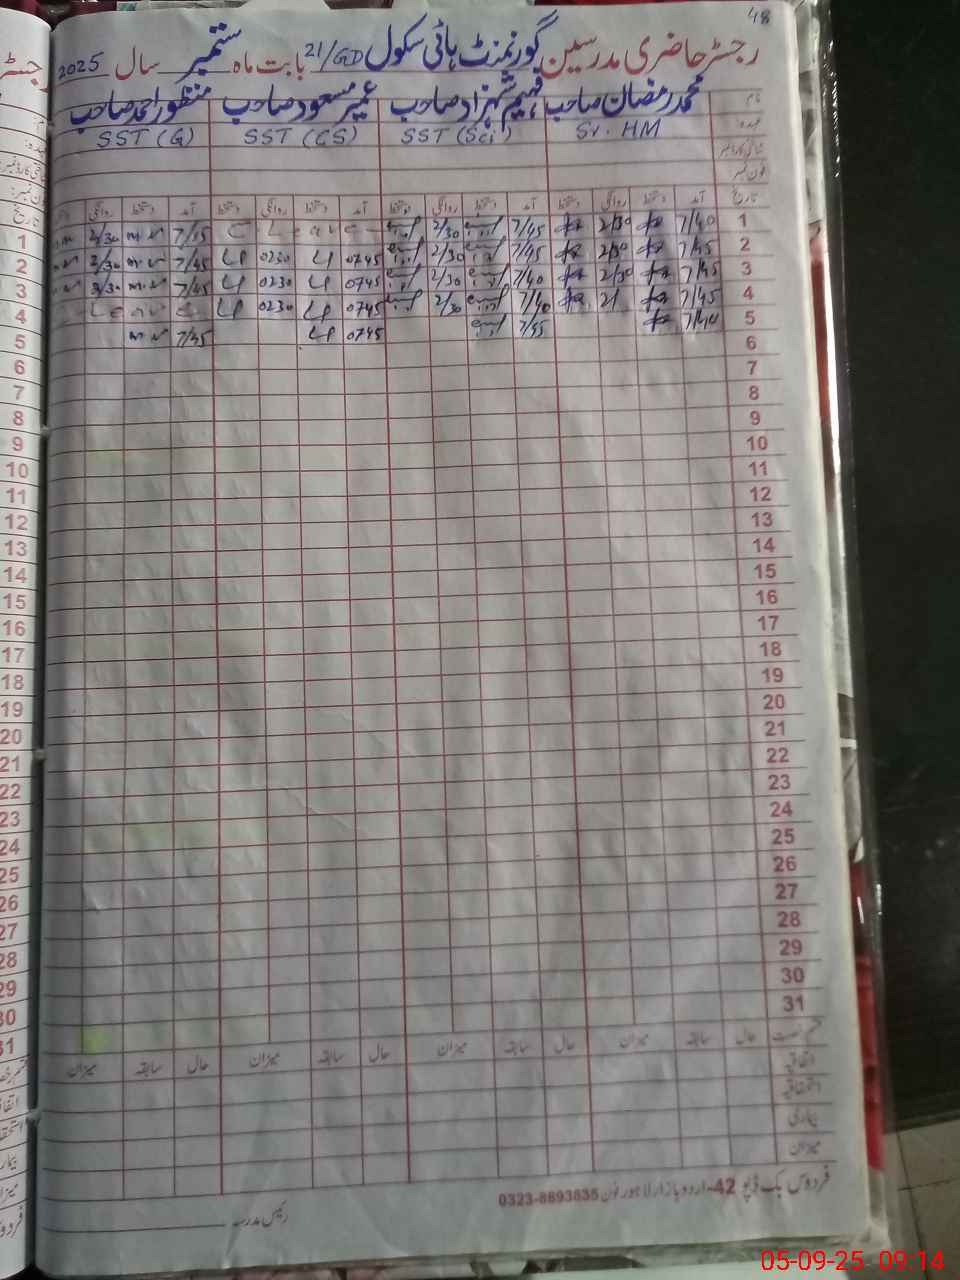 48
رجسٹر حاضری مدرسین گورنمنٹ ہائی سکول 21/GD بابت ماہ ستمبر سال 2025
نام محمد رمضان صاحب فہیم شہزاد صاحب عمیر مسعود صاحب منظور احمد صاحب
عہدہ Sr. HM SST (Sci) SST (CS) SST (G)
شناختی کارڈ نمبر
فون نمبر
تاریخ آمد دستخط روانگی دستخط آمد دستخط روانگی دستخط آمد دستخط روانگی دستخط آمد دستخط روانگی
1 7/40 2/30 7/45 2/30 Leave 7/45 2/30
2 7/45 2/30 7/45 2/30 0745 0230 7/45 2/30
3 7/45 2/30 7/40 2/30 0745 0230 7/45 2/30
4 7/45 2/ 7/40 2/30 0745 0230 Leave
5 7/40 7/45 0745 7/45
6
7
8
9
10
11
12
13
14
15
16
17
18
19
20
21
22
23
24
25
26
27
28
29
30
31
قسم رخصت حال سابقہ میزان حال سابقہ میزان حال سابقہ میزان حال سابقہ میزان
اتفاقیہ
استحقاقیہ
بیماری
میزان
فردوس بک ڈپو 42-اردو بازار لاہور فون 0323-8893835
رئیس مدرسہ
05-09-25 09:14